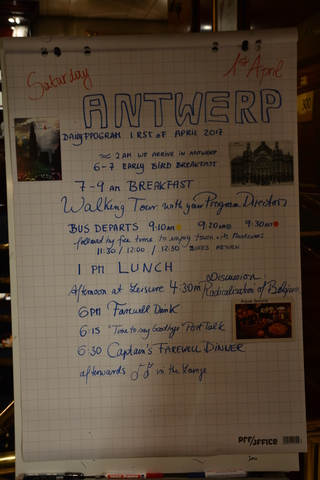 Saturday
1st April
ANTWERP
DAILY PROGRAM 1RST OF APRIL 2017
≈ 2 AM WE ARRIVE IN ANTWERP
6-7 EARLY BIRD BREAKFAST
7-9 am BREAKFAST
Walking Tour with your Program Directors
BUS DEPARTS 9:10am 9:20am 9:30am
followed by free time to enjoy town
11:30 / 12:00 / 12:30 BUSES RETURN
1 PM LUNCH
Afternoon at Leisure 4:30m Discussion
Radicalisation of Belgium
6PM Farewell Drink
6:15 "Time to say Goodbye" Port Talk
6:30 Captain's FAREWELL DINNER
afterwards ♫ in the Lounge
pro/office